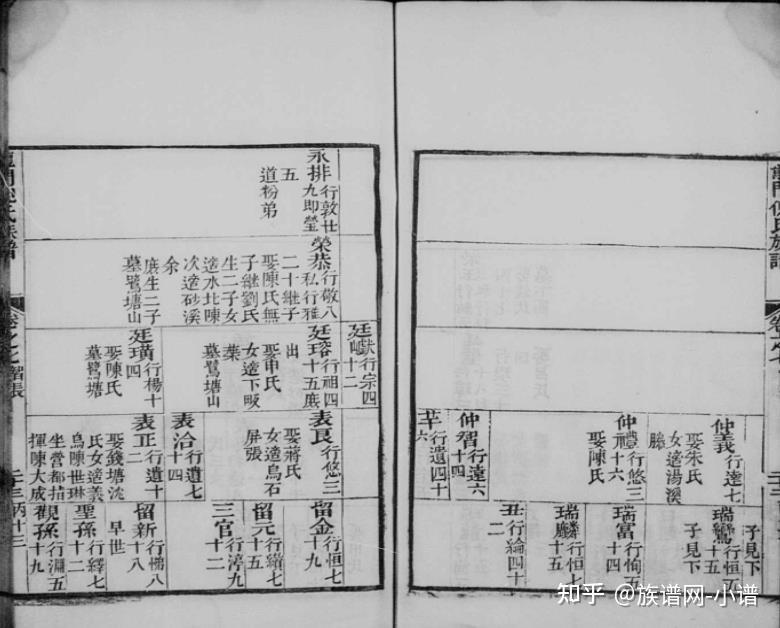 氏族譜
卷之七
子見下
仲義行達七
娶朱氏
女適湯溪
滕
瑞鸞行恒五十五
子見下
仲禮行悠三十六
娶陳氏
瑞富行恂五十四
仲智行遠六十四
瑞麟行恒七十五
行遺四十六
丑行綸四十二
永排行敦廿九即瑩
五
道粉弟
榮恭行敬八私行雅
二十繼子
娶陳氏無
子繼劉氏
生二子女
適水北陳
次適砂溪
余
庶生二子
墓鷺塘山
行宗四十二
廷瑢行祖四十五庶
出
娶申氏
女適下畈
葉
墓鷺塘山
廷璜行楊十四
娶陳氏
墓鷺塘
表良行悠三
娶蔣氏
女適烏石
屏張
表治行遺七十四
表正行遺十二
娶錢塘沈
氏女適義
烏陳世琳
坐營都指
揮陳大成
留金行恒七十九
留元行績七十五
三官行渟九十二
留新行悌八十八
早世
聖孫行繹七十
觀孫行淵五十九
氏族譜
卷之七
二十三
丙十三
知乎 @族谱网-小谱